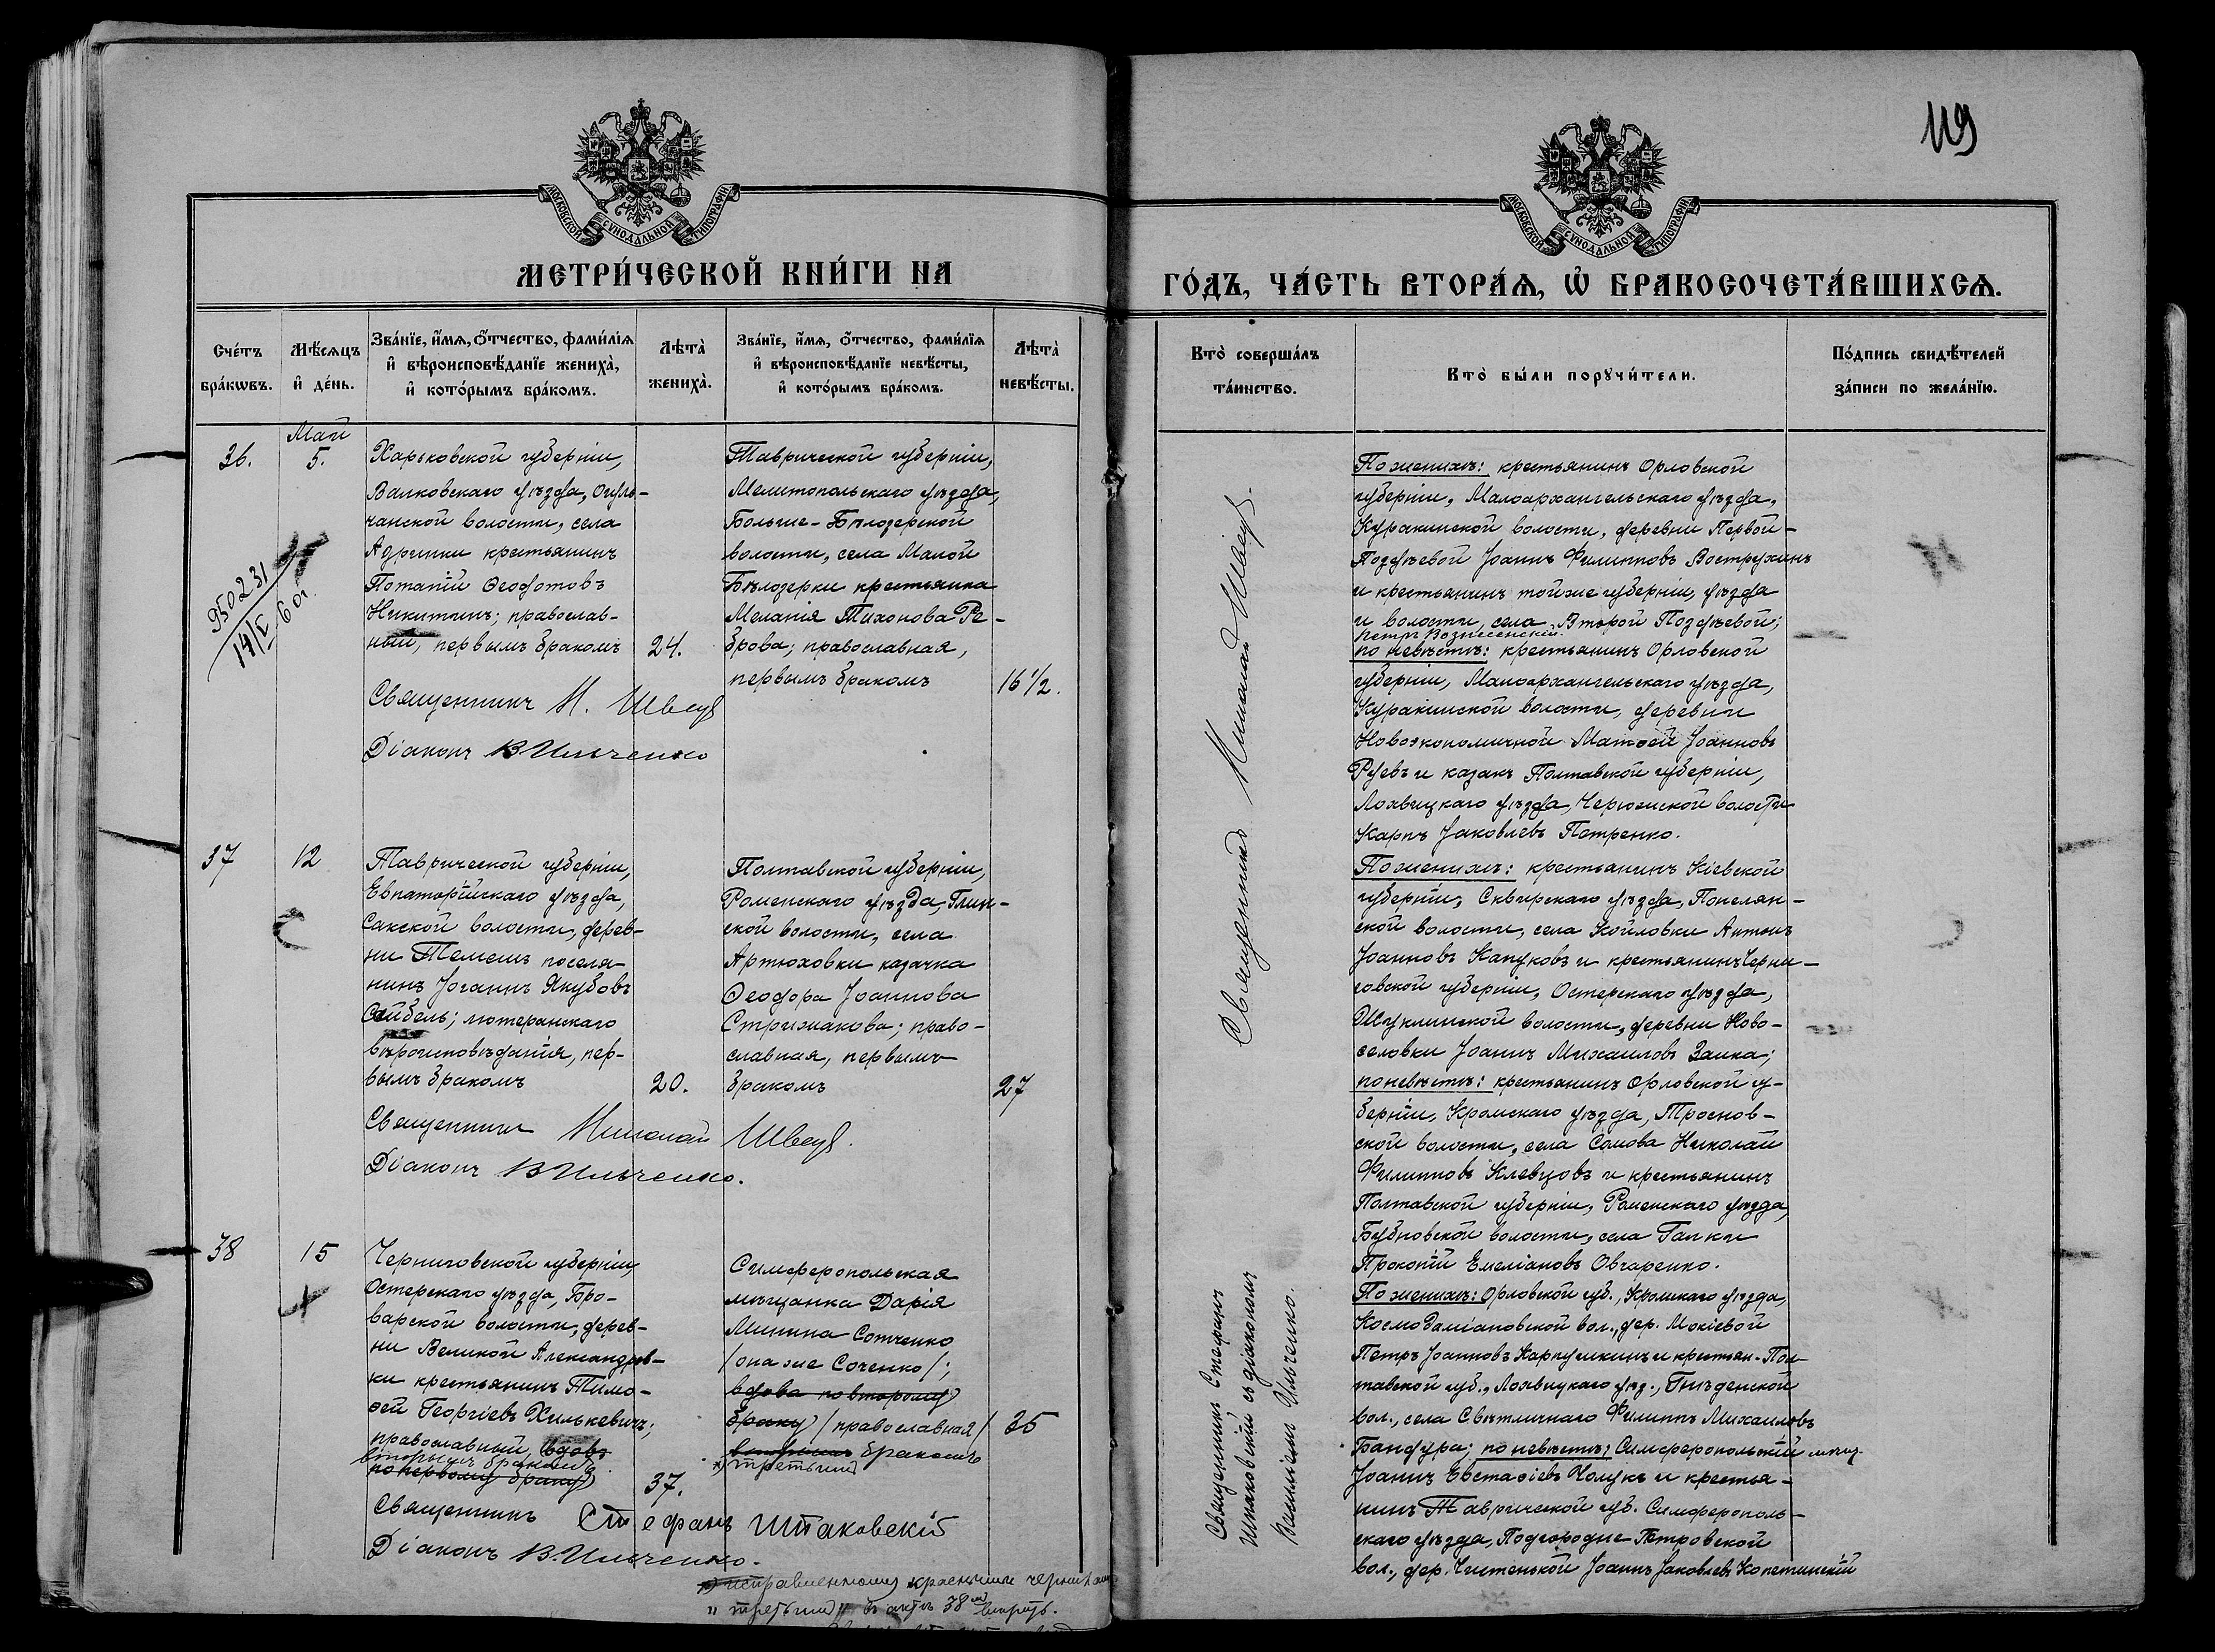 119
МОСКОВСКОЙ СУНОДАЛЬНОЙ ТИПОГРАФІИ
МОСКОВСКОЙ СУНОДАЛЬНОЙ ТИПОГРАФІИ
МЕТРИ́ЧЕСКОЙ КНИ́ГИ НА
ГО́ДЪ, ЧА́СТЬ ВТОРА́Ѧ, Ѽ БРАКОСОЧЕТА́ВШИХСѦ.
Сче́тъ
бра́кѡвъ.
Мѣ́сѧцъ
и҆ де́нь.
Зва́нїе, и҆́мѧ, ѻ҆́тчество, фами́лїѧ
и҆ вѣроисповѣ́данїе жениха̀,
и҆ кото́рымъ бра́комъ.
Лѣта̀
жениха̀.
Зва́нїе, и҆́мѧ, ѻ҆́тчество, фами́лїѧ
и҆ вѣроисповѣ́данїе невѣ́сты,
и҆ кото́рымъ бра́комъ.
Лѣта̀
невѣ́сты.
Кто̀ соверша́лъ
та́инство.
Кто̀ бы́ли порꙋчи́тели.
По́дпись свидѣ́телей
за́писи по жела́нїю.
36.
Май
5.
950231
14/V 60г.
Харьковской губерніи,
Валковскаго уѣзда, Огуль-
чанской волости, села
Адринки крестьянинъ
Потапій Ѳеодотовъ
Никитинъ; православ-
ный, первымъ бракомъ
24.
Таврической губерніи,
Мелитопольскаго уѣзда,
Больше-Бѣлозерской
волости, села Малой
Бѣлозерки крестьянка
Меланія Тихонова Ре-
брова; православная,
первымъ бракомъ
16 1/2.
Священникъ Н. Швецъ
Діаконъ В Ильченко
Священникъ Николай Швецъ.
По женихѣ: крестьянинъ Орловской
губерніи, Малоархангельскаго уѣзда,
Куракинской волости, деревни Первой-
Поздѣевой Іоаннъ Филипповъ Вострухинъ
и крестьянинъ тойже губерніи, уѣзда
и волости, села Второй Поздѣевой;
Петръ Вознесенскій.
по невѣстѣ: крестьянинъ Орловской
губерніи, Малоархангельскаго уѣзда,
Куракинской волости, деревни
Новоэкономичной Матѳей Іоанновъ
Руевъ и казакъ Полтавской губерніи,
Лохвицкаго уѣзда, волости
Карпъ Іаковлевъ Петренко.
37
12
Таврической губерніи,
Евпаторійскаго уѣзда,
Сакской волости, дерев-
ни Темешъ поселя-
нинъ Іоганнъ Якубовъ
Сейбель; лютеранскаго
вѣроисповѣданія, пер-
вымъ бракомъ
20.
Полтавской губерніи,
Роменскаго уѣзда, Глин-
ской волости, села
Артюховки казачка
Ѳеодора Іоаннова
Стрижакова; право-
славная, первымъ
бракомъ
27
Священникъ Николай Швецъ.
Діаконъ В Ильченко.
По женихѣ: крестьянинъ Кіевской
губерніи, Сквирскаго уѣзда, Попелян-
ской волости, села Койловки Антонъ
Іоанновъ Капуковъ и крестьянинъ Черни-
говской губерніи, Остерскаго уѣзда,
волости, деревни Ново-
селовки Іоаннъ Михаиловъ Заика;
по невѣстѣ: крестьянинъ Орловской гу-
берніи, Кромскаго уѣзда, Троснов-
ской волости, села Сомова Николай
Филипповъ Клевцовъ и крестьянинъ
Полтавской губерніи, Роменскаго уѣзда,
Бубновской волости, села Галки
Прокопій Емеліановъ Овчаренко.
38
15
Черниговской губерніи,
Остерскаго уѣзда, Бро-
варской волости, дерев-
ни Великой Александров-
ки крестьянинъ Тимо-
ѳей Георгіевъ Хилькевичъ;
православный, вдовъ
вторымъ бракомъ
по первому браку
37.
Симферопольская
мѣщанка Дарія
Минина Сотченко
/она же Соченко/;
вдова по второму
браку /православная/
вторымъ бракомъ
х) третьимъ
35
Священникъ Стефанъ Шпаковскій
Діаконъ В. Ильченко.
Священникъ Стефанъ
Шпаковскій съ діакономъ
Василіемъ Ильченко.
По женихѣ: Орловской губ., Кромскаго уѣзда,
Космодаміановской вол., дер. Мокіевой
Петръ Іоанновъ Карпушкинъ и крестьян. Пол-
тавской губ., Лохвицкаго уѣз., Гнѣзденской
вол., села Свѣтличнаго Филиппъ Михаиловъ
Бандура; по невѣстѣ: Симферопольскій мѣщ.
Іоаннъ Евстафіевъ Чолукъ и крестья-
нинъ Таврической губ. Симферополь-
скаго уѣзда, Подгородне-Петровской
вол., дер. Чистенькой Іоаннъ Іаковлевъ Копетинскій
х) исправленному красными чернилами
"третьимъ" въ актѣ 38м вѣрить.